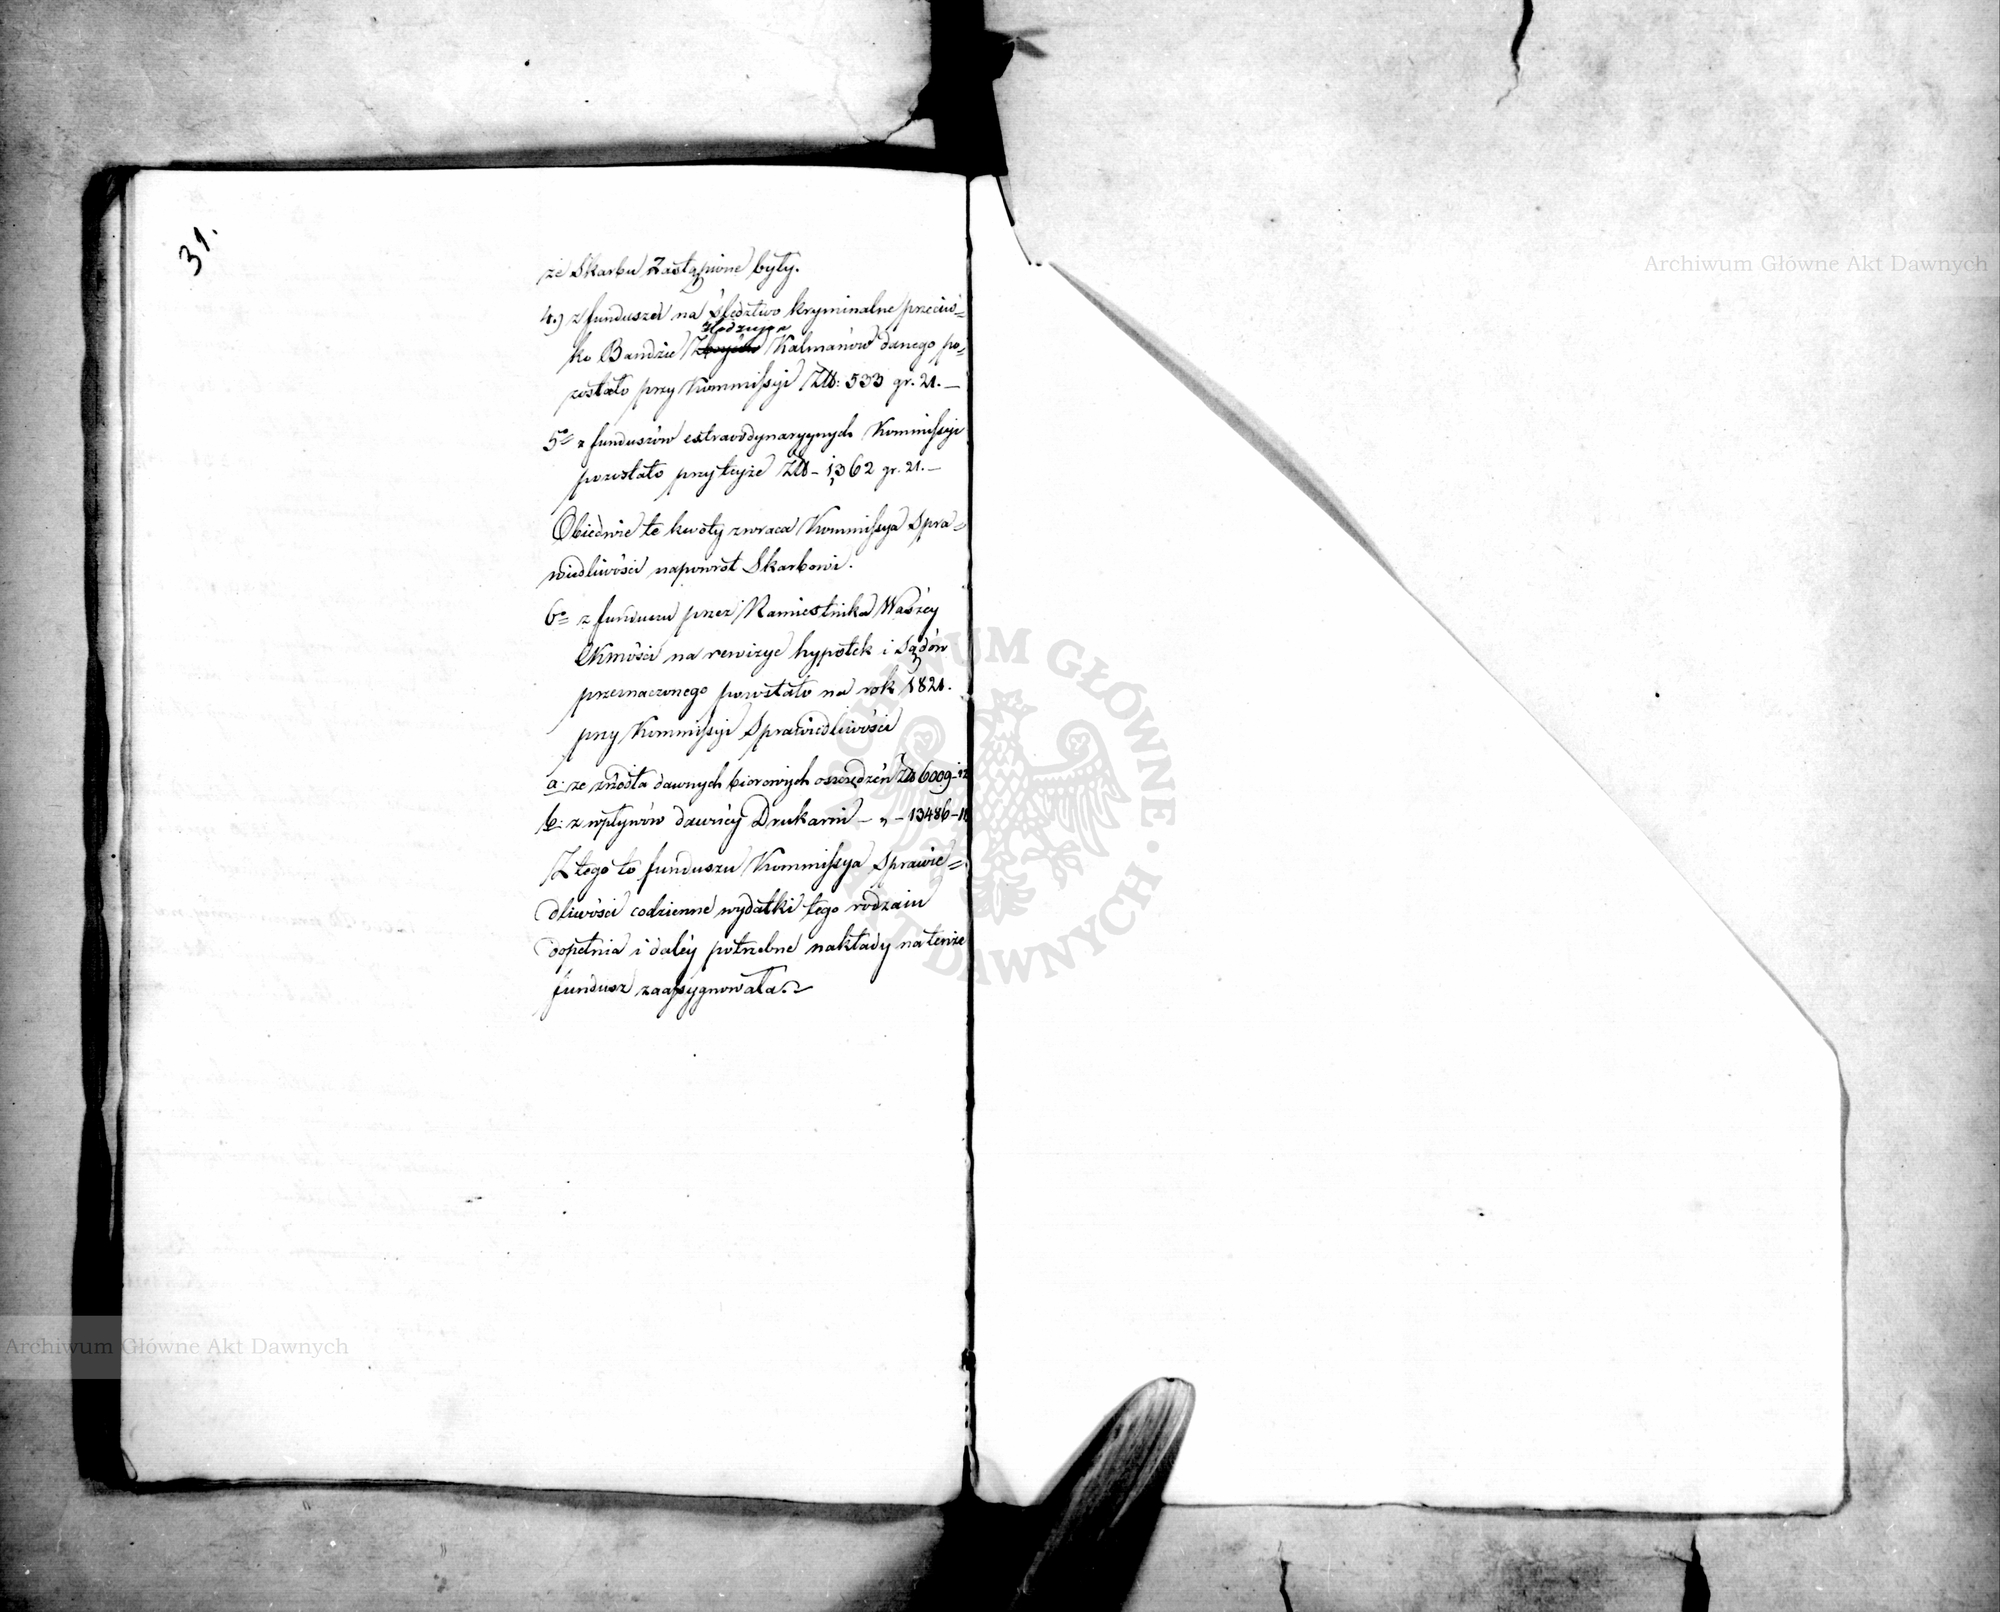 31.
ze Skarbu Zastąpione były.
4.) z funduszu na śledztwo kryminalne przeciw=
ko Bandzie Złodziejów Kalmanów danego po=
zostało przy Kommissyi Złł: 533 gr. 21.—
5o= z funduszów extraordynaryynych Kommissyi
pozostało przy teyże Złł – 1,362 gr. 21.—
Obiedwie te kwoty zwraca Kommissya Spra=
wiedliwości napowrót Skarbowi.
6o= z funduszu przez Namiestnika Waszéy
CKmości na rewizye hypotek i Sądów
przeznaczonego pozostało na rok 1821.
przy Kommissyi Sprawiedliwości
a: ze źródła dawnych biorowych oszczędzeń Złł 6009–12
b: z wpływów dawnéy Drukarni – „ – 13486–18
Z tego to funduszu Kommissya Sprawie=
dliwości codzienne wydatki tego rodzaiu
dopełnia i daléy potrzebne nakłady na tenże
fundusz zaassygnowała.
Archiwum Główne Akt Dawnych
Archiwum Główne Akt Dawnych
ARCHIWUM GŁÓWNE AKT DAWNYCH